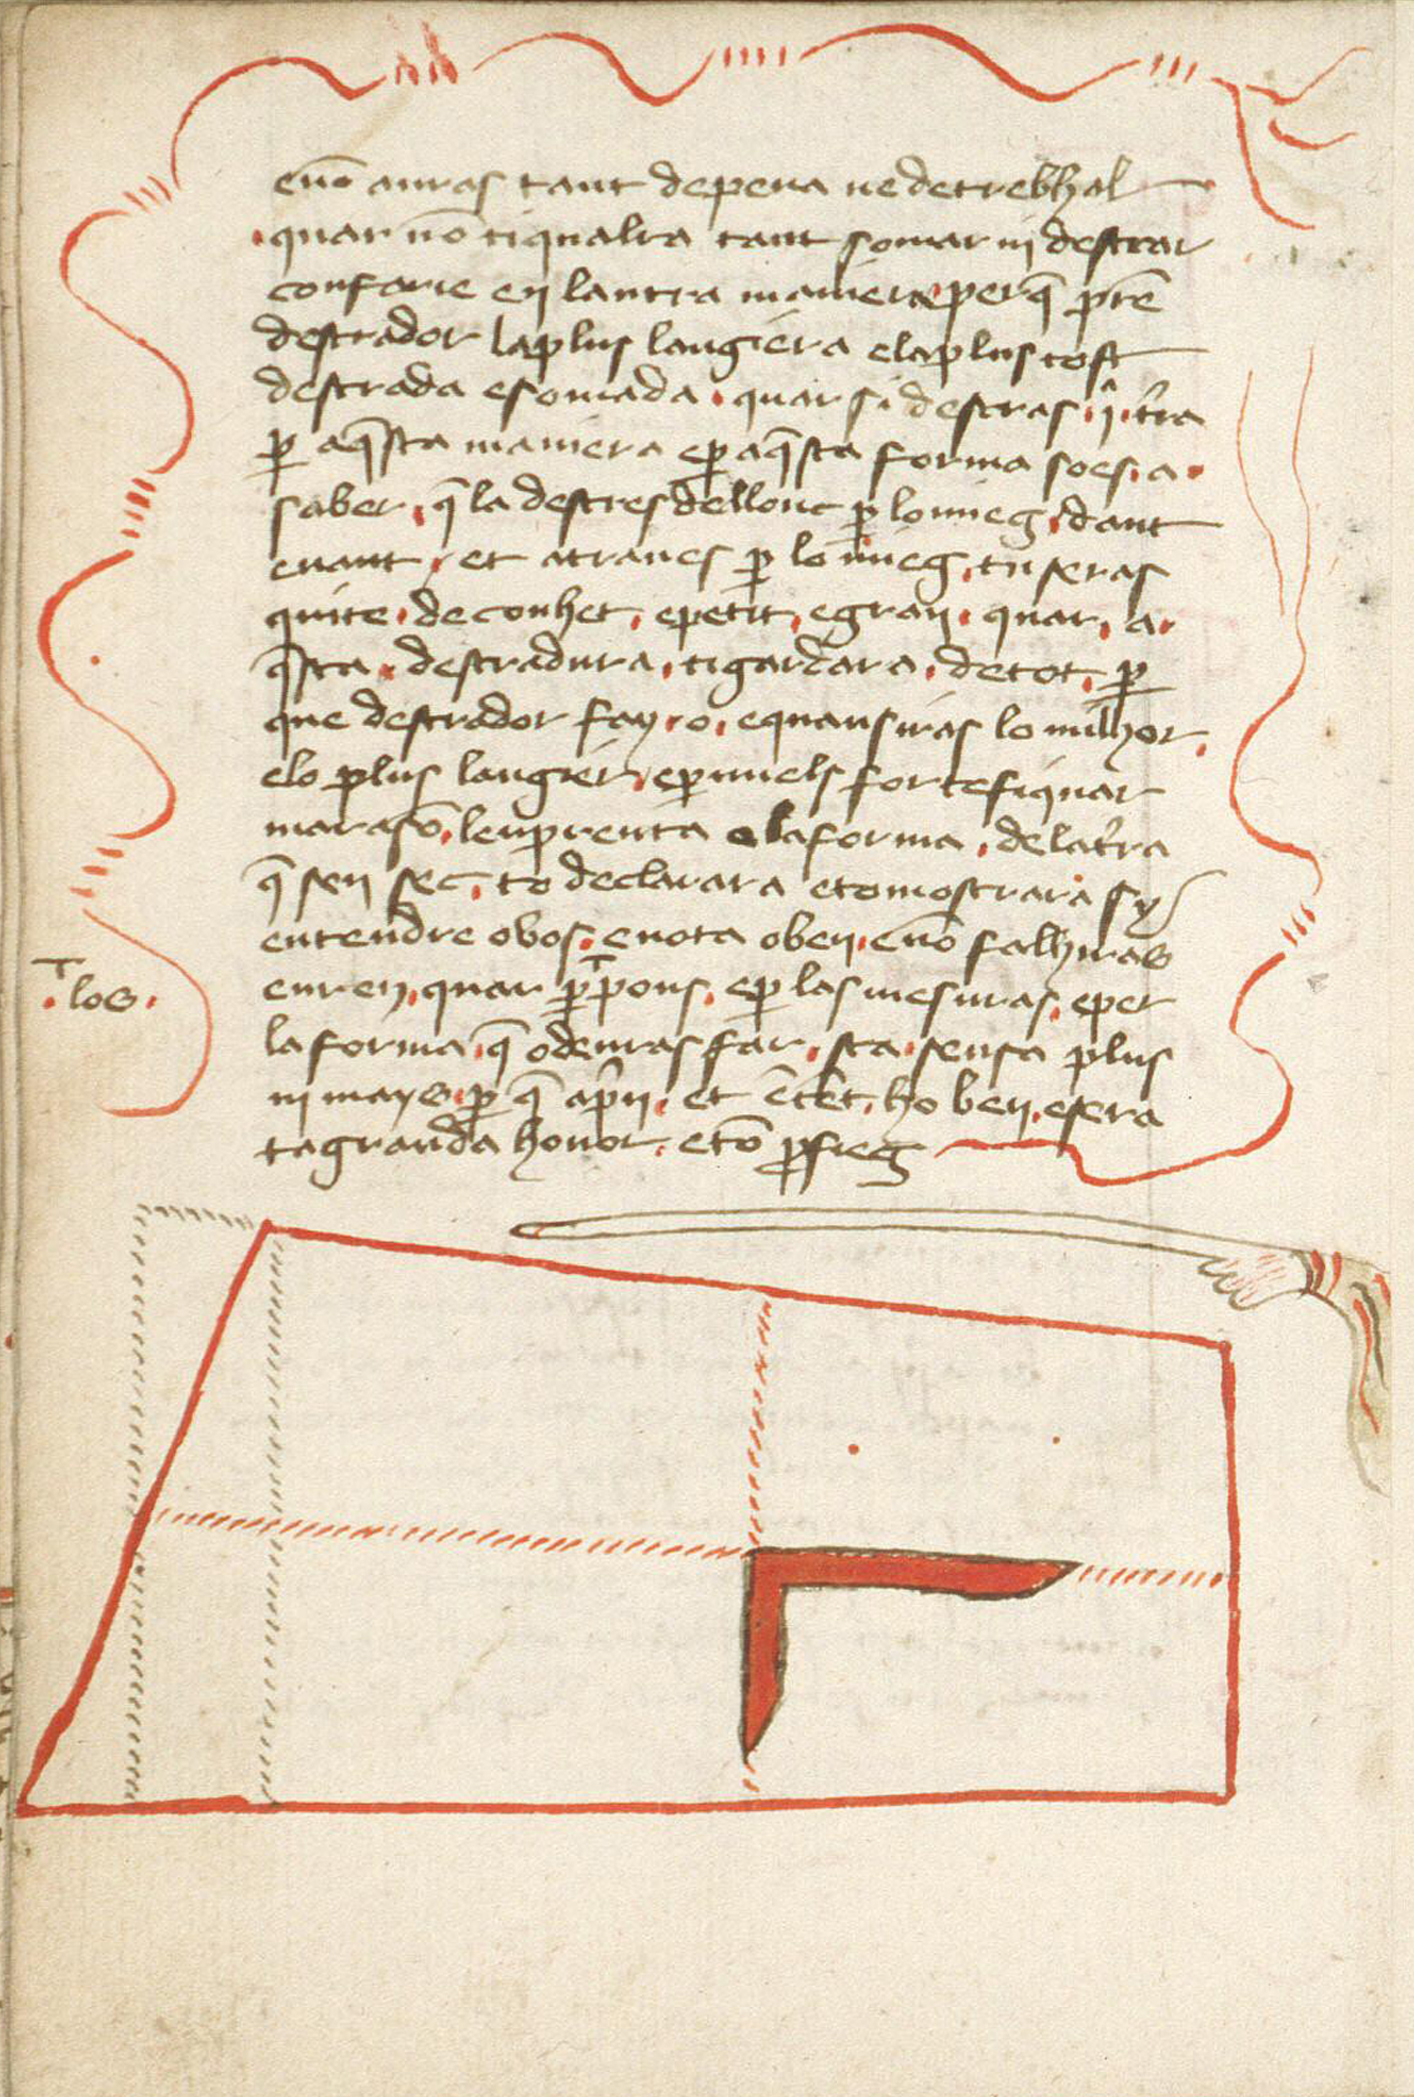 eno auras tant de pena ne de trebhal
quar no ti qualra tant somar ni destrar
con farie en lautra maniera per q̄ pren
destrador la plus laugiera e la plus tost
destrada e somada · quar si destras · i̊ · t̄ra
ꝑ aq̄sta maniera e ꝑ aq̄sta forma so es · a ·
saber · q̄ la destres del lonc ꝑ lo mieg · dant
enant · et a traves ꝑ lo mieg · tu seras
quite · de conhet · e petit · e gran · quar · a ·
q̄sta · destradura · ti gardara · de tot · ꝑ
que destrador fay · o · e quansiras lo milhor ·
e lo plus laugier · e ꝑ miels fortefiquar
ma raso · l enprenta e la forma · de la t̄ra
q̄ sen sec · to declarara e to mostrara
entendre o vos · e nota o ben · e no falhiras
en ren · quar ꝑ pons · e ꝑ las mesuras · e per
· los ·
la forma · q̄ o deuras far · sta · sensa plus
ni mays · ꝑ q̄ apren · et enten · ho ben · e sera
ta granda honor · e ton ꝓfieg